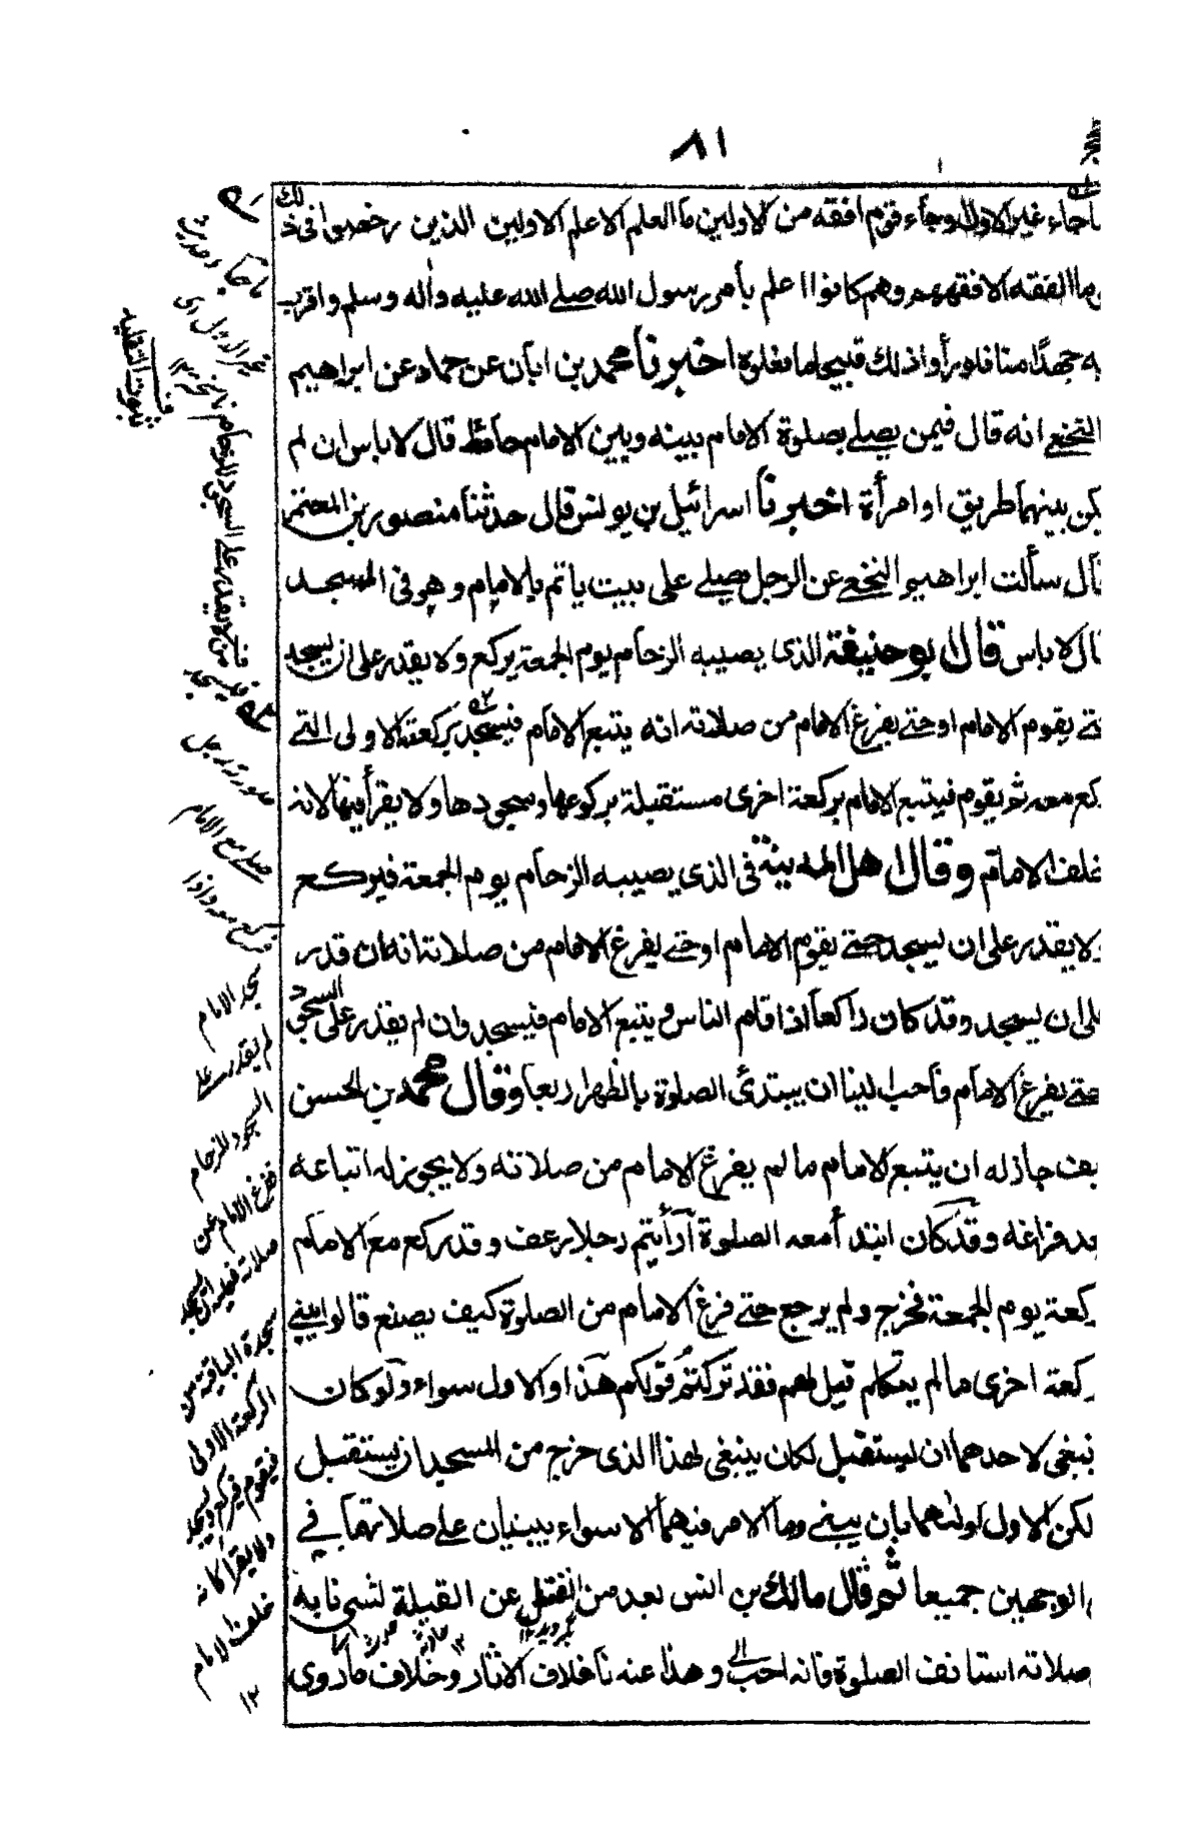 ٨١
جاء غير الاول وجاء قوم افقه من الاولين ما العلم الا علم الاولين الذين رخصوا فى ذلك
ما الفقه الا فقههم وهم كانوا اعلم بأمر رسول الله صلے الله عليه واٰله وسلم واقرب
به عهدًا منا فلو رأوا ذلك قبيحا ما فعلوه اخبرنا محمد بن ابان عن حماد عن ابراهيم
النخعے انه قال فيمن يصلے بصلوة الامام بينه وبين الامام حائط قال لا باس ان لم
يكن بينهما طريق او امرأة اخبرنا اسرائيل بن يونس قال حدثنا منصور بن المعتمر
قال سألت ابراهيم النخعے عن الرجل يصلے على بيت ياتم بالامام وهو فى المسجد
قال لا باس قال ابو حنيفة الذى يصيبه الزحام يوم الجمعة يركع ولا يقدر على ان يسجد
حتے يقوم الامام او حتے يفرغ الامام من صلاته انه يتبع الامام فيسجد بركعته الاولى التے
ركع معه ثم يقوم فيتبع الامام بركعة اخرى مستقبلة بركوعها وسجودها ولا يقرأ فيها لانه
خلف الامام وقال اهل المدينة فى الذى يصيبه الزحام يوم الجمعة فيركع
ولا يقدر على ان يسجد حتے يقوم الامام او حتے يفرغ الامام من صلاته انه ان قدر
على ان يسجد وقد كان راكعا اذا قام الناس ويتبع الامام فيسجد وان لم يقدر على السجود
حتے يفرغ الامام فأحب الينا ان يبتدئ الصلوة بالظهر اربعا وقال محمد بن الحسن
كيف جاز له ان يتبع الامام ما لم يفرغ الامام من صلاته ولا يجوز له اتباعه
بعد فراغه وقد كان ابتدأ معه الصلوة أرأيتم رجلا رعف وقد ركع مع الامام
ركعة يوم الجمعة فخرج ولم يرجع حتے فرغ الامام من الصلوة كيف يصنع قالوا يبنے
ركعة اخرى ما لم يتكلم قيل لهم فقد تركتم قولكم هذا والاول سواء ولو كان
ينبغى لاحدهما ان يستقبل لكان ينبغى لهذا الذى خرج من المسجد ان يستقبل
لكن الاول اولٰهما بان يبنے وما الامر فيهما الا سواء يبنيان علے صلاتهما فے
الوجهين جميعا ثم قال مالك بن انس بعد من انفتل عن القبلة لشى نابه
صلاته استانف الصلوة فانه احب الى وهذا عنه نا خلاف الاثار وخلاف ما روى
فثبوت التقليد
من لا يقدر على السجود للزحام
صورة رجل
صلے مع الامام
فركع معه واذا
سجد الامام
لم يقدر علے
السجود للزحام
ففرغ الامام عن
صلاته
سجدة الباقية من
الركعة الاولى
فيقوم فيركع ويسجد
ولا يقرأ كانه
خلف الامام
١٢